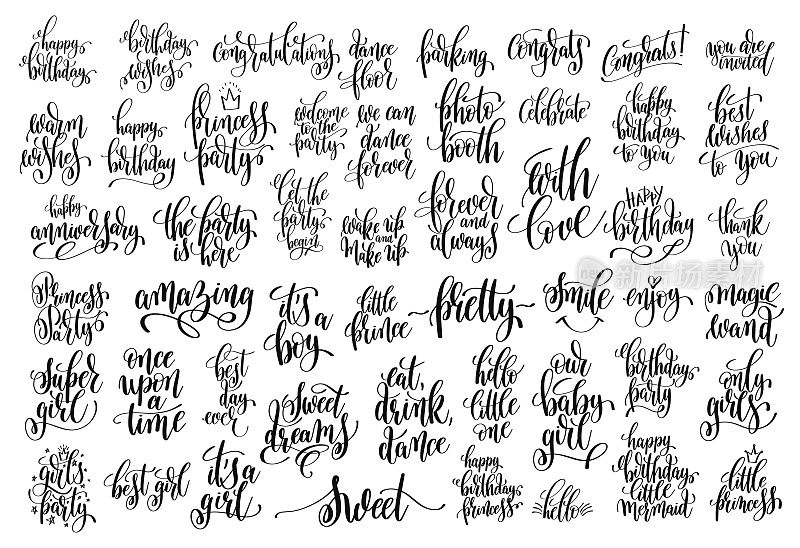 happy
birthday
birthday
wishes
congratulations
dance
floor
parking
congrats
Congrats!
you are
invited
warm
wishes
happy
birthday
princess
party
welcome
to the
party
we can
dance
forever
photo
booth
celebrate
happy
birthday
to you
best
wishes
to you
happy
anniversary
the party
is here
let the
party
begin
wake up
and
make up
forever
and
always
with
love
HAPPY
birthday
thank
you
Princess
Party
amazing
it's a
boy
little
prince
~pretty~
smile
enjoy
magic
wand
super
girl
once
upon
a
time
best
day
ever
sweet
dreams
eat,
drink,
dance
hello
little
one
our
baby
girl
birthday
party
only
girls
girl's
party
best girl
it's a
girl
sweet
happy
birthday
princess
hello
happy
birthday
little
mermaid
little
princess
新片场素材